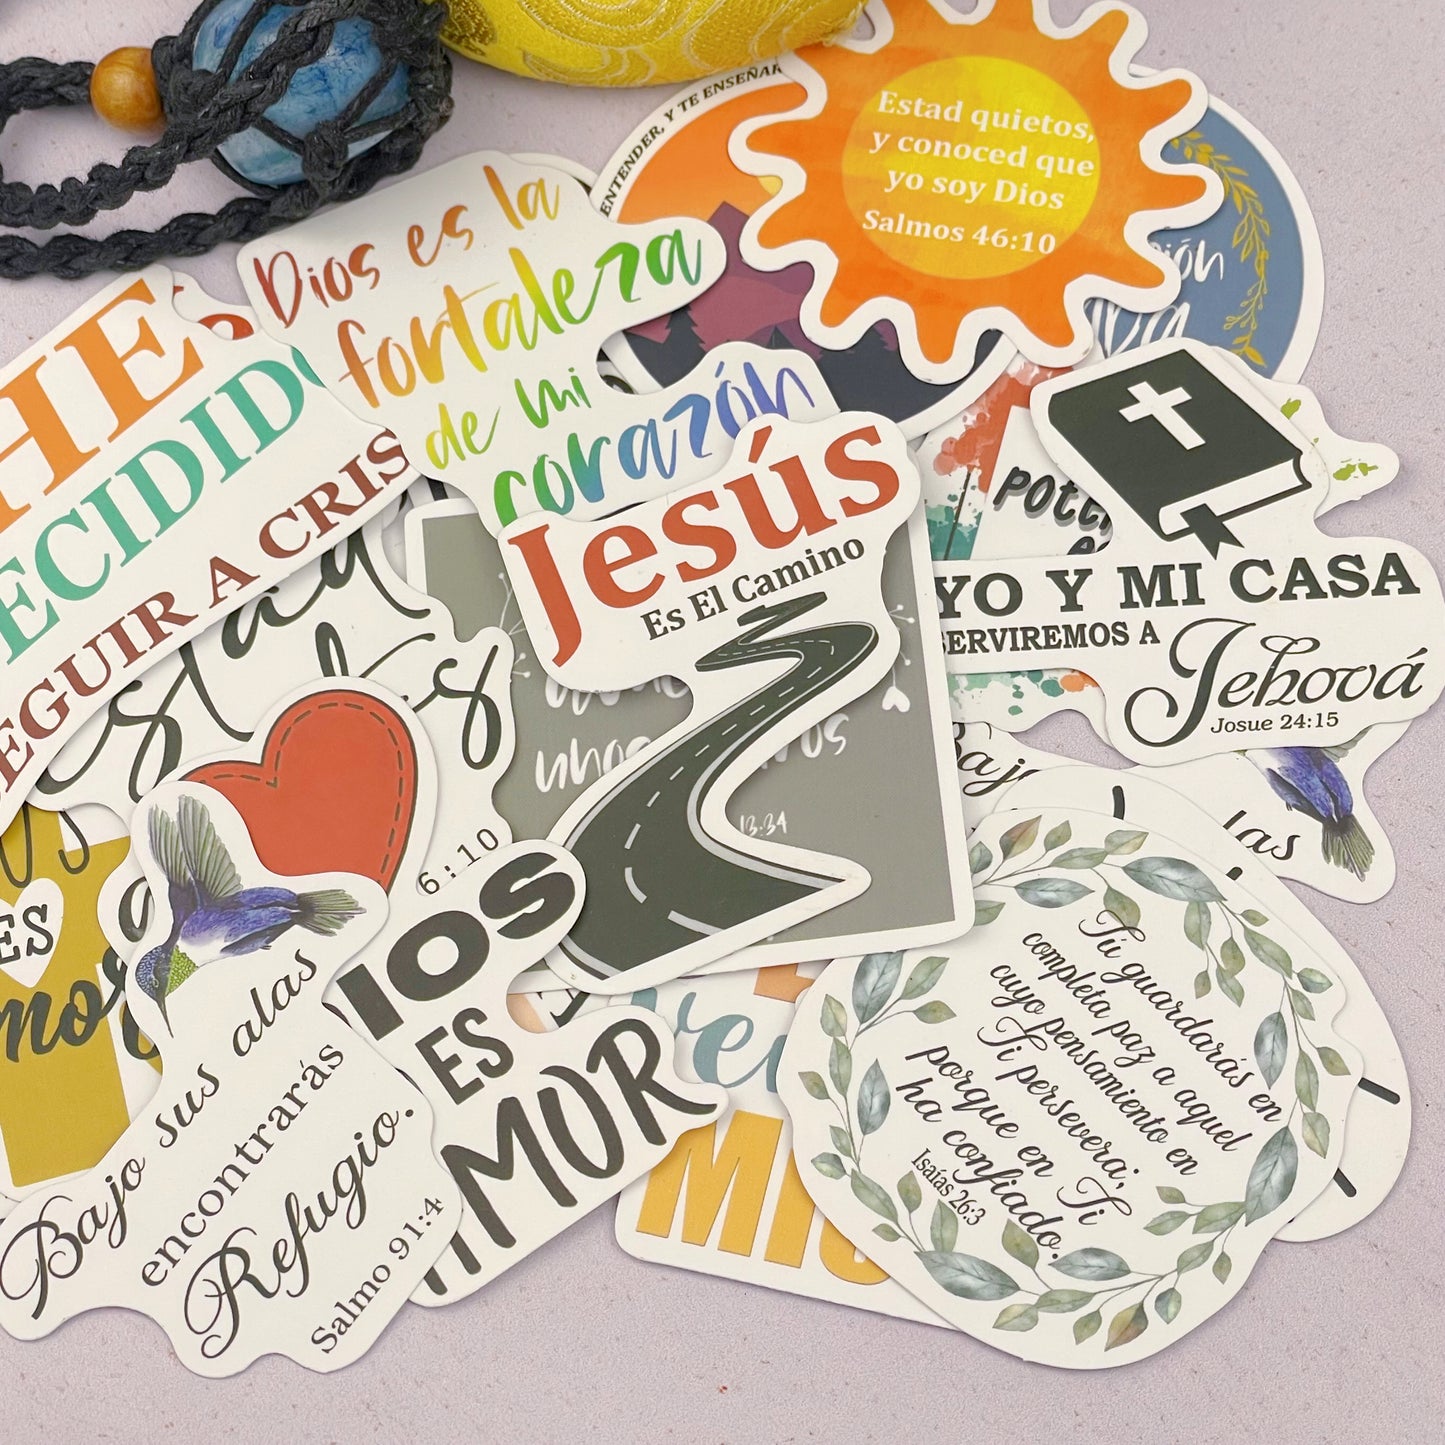 ENTENDER, Y TE ENSEÑAR
Estad quietos,
y conoced que
yo soy Dios
Salmos 46:10
Dios es la
fortaleza
de mi
corazón
HE
ECIDID
SEGUIR A CRIS
Jesús
Es El Camino
YO Y MI CASA
SERVIREMOS A
Jehová
Josue 24:15
13:34
6:10
ES
Bajo sus alas
encontrarás
Refugio.
Salmo 91:4
IOS
ES
AMOR
Bajo
alas
Tú guardarás en
completa paz a aquel
cuyo pensamiento en
Ti persevera;
porque en Ti
ha confiado.
Isaías 26:3